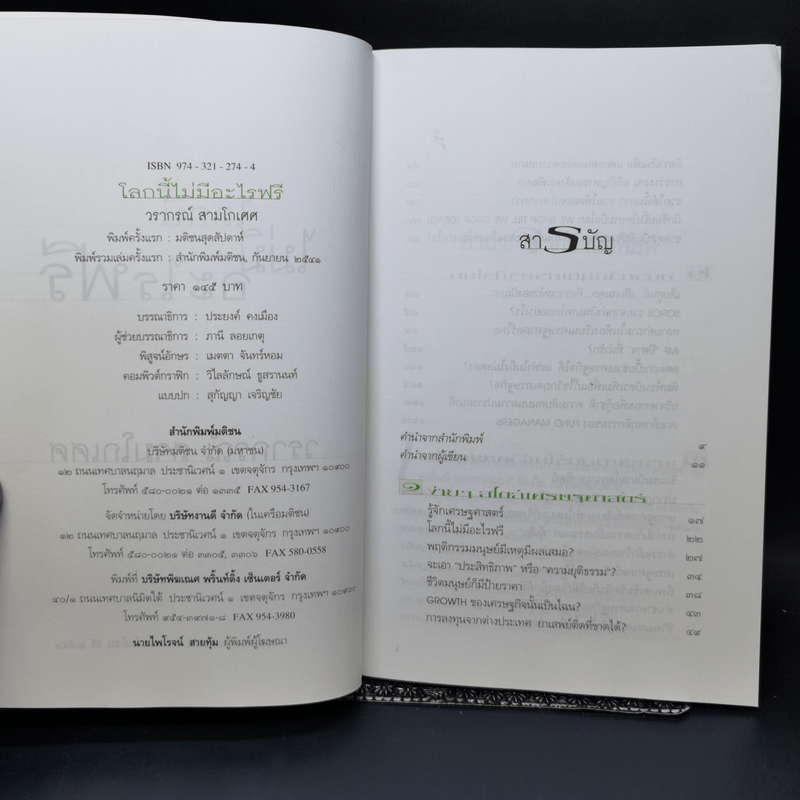 ISBN 974 - 321 - 274 - 4
โลกนี้ไม่มีอะไรฟรี
วรากรณ์ สามโกเศศ
พิมพ์ครั้งแรก : มติชนสุดสัปดาห์
พิมพ์รวมเล่มครั้งแรก : สำนักพิมพ์มติชน, กันยายน ๒๕๔๑
ราคา ๑๔๕ บาท
บรรณาธิการ : ประยงค์ คงเมือง
ผู้ช่วยบรรณาธิการ : ภานี ลอยเกตุ
พิสูจน์อักษร : เมตตา จันทร์หอม
คอมพิวต์กราฟิก : วิไลลักษณ์ ชูสรานนท์
แบบปก : สุกัญญา เจริญชัย
สำนักพิมพ์มติชน
บริษัทมติชน จำกัด (มหาชน)
๑๒ ถนนเทศบาลนฤมาล ประชานิเวศน์ ๑ เขตจตุจักร กรุงเทพฯ ๑๐๙๐๐
โทรศัพท์ ๕๘๐-๐๐๒๑ ต่อ ๑๓๓๕ FAX 954-3167
จัดจำหน่ายโดย บริษัทงานดี จำกัด (ในเครือมติชน)
๑๒ ถนนเทศบาลนฤมาล ประชานิเวศน์ ๑ เขตจตุจักร กรุงเทพฯ ๑๐๙๐๐
โทรศัพท์ ๕๘๐-๐๐๒๑ ต่อ ๓๓๐๕, ๓๓๐๖ FAX 580-0558
พิมพ์ที่ บริษัทพิฆเณศ พริ้นท์ติ้ง เซ็นเตอร์ จำกัด
๔๐/๑ ถนนเทศบาลนิมิตใต้ ประชานิเวศน์ ๑ เขตจตุจักร กรุงเทพฯ ๑๐๙๐๐
โทรศัพท์ ๙๕๔-๓๙๗๑-๘ FAX 954-3980
นายไพโรจน์ สายทุ้ม ผู้พิมพ์ผู้โฆษณา
สารบัญ
คำนำจากสำนักพิมพ์ ๙
คำนำจากผู้เขียน ๑๑
๑
รู้จักเศรษฐศาสตร์ ๑๗
โลกนี้ไม่มีอะไรฟรี ๒๒
พฤติกรรมมนุษย์มีเหตุมีผลเสมอ? ๒๗
จะเอา "ประสิทธิภาพ" หรือ "ความยุติธรรม"? ๓๔
ชีวิตมนุษย์ก็มีป้ายราคา ๓๘
GROWTH ของเศรษฐกิจนั้นเป็นไฉน? ๔๓
การลงทุนจากต่างประเทศ ยาเสพย์ติดที่ขาดได้? ๔๙